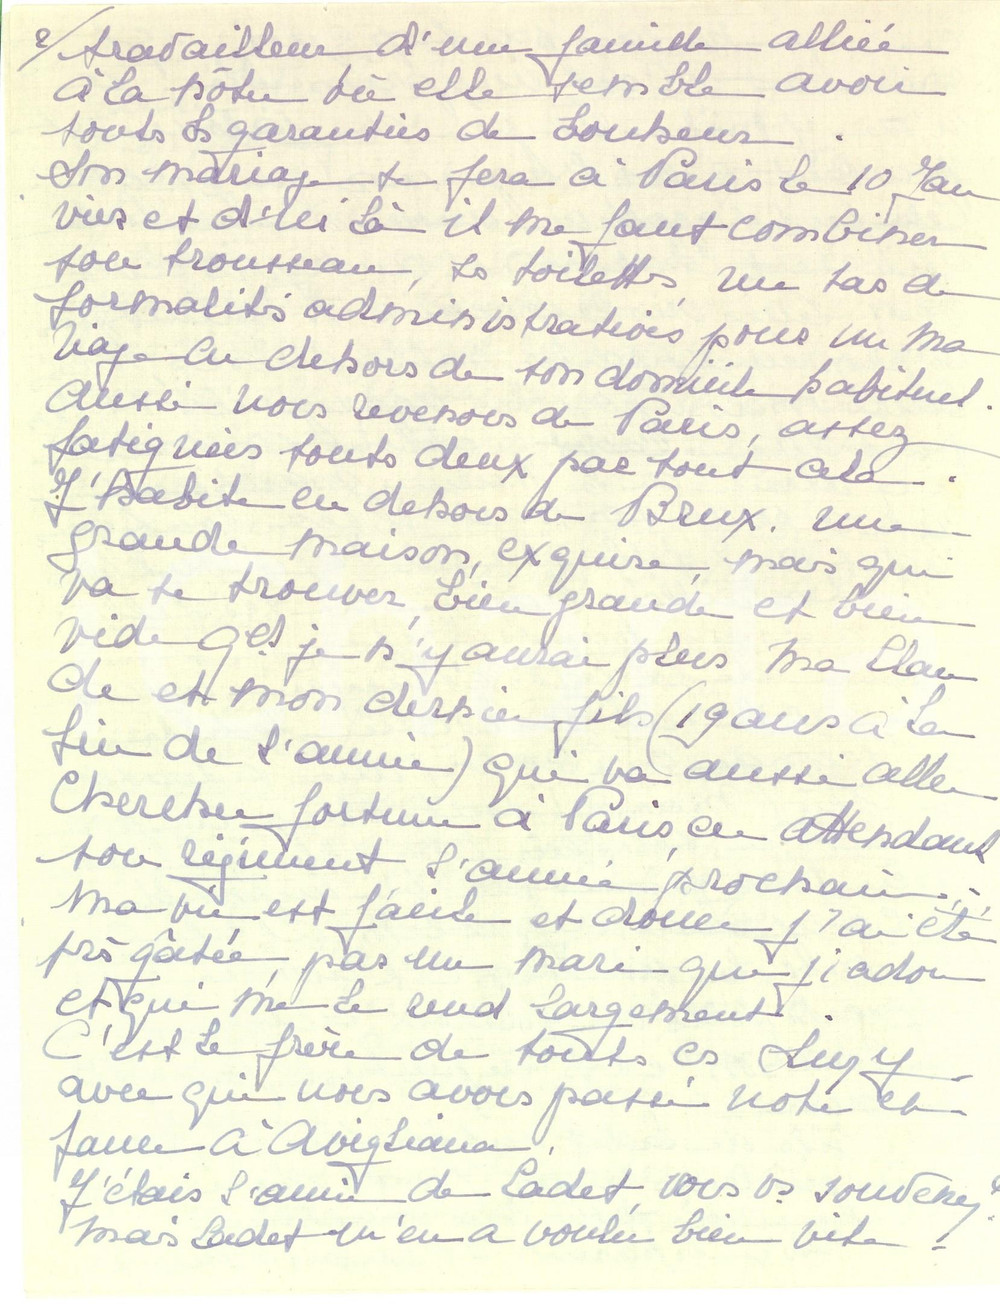 2/ travailleur d'une famille alliée
à la nôtre où elle semble avoir
toutes les garanties de bonheur.
Son mariage se fera à Paris le 10 Jan
vier et d'ici là il me faut combiner
son trousseau, ses toilettes, un tas de
formalités administratives pour un ma
riage en dehors de son domicile habituel.
Aussi nous revenons de Paris, assez
fatiguées toutes deux par tout cela.
J'habite en dehors de Brux. une
grande maison, exquise, mais qui
va se trouver bien grande et bien
vide qd je n'y aurai plus ma Clau
de et mon dernier fils (19 ans à la
fin de l'année) qui va aussi aller
chercher fortune à Paris, en attendant
son régiment l'année prochaine.
Ma vie est facile et douce, j'ai été
très gâtée, par un mari que j'adore
et qui me le rend largement.
C'est le frère de toutes ces Luzy
avec qui nous avons passé notre en
fance à Avigliana.
J'étais l'amie de Cadet, vous vs souvenez?
Mais Cadet m'en a voulu bien vite.